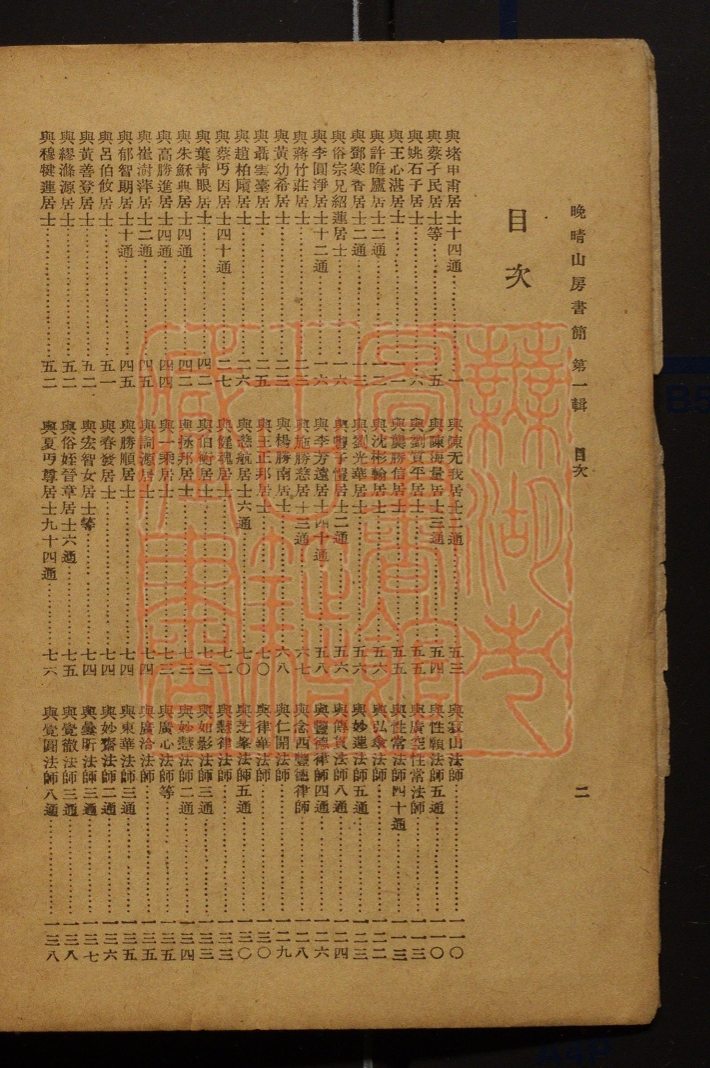 晚晴山房書簡 第一輯 目次 二
目次
與堵申甫居士十四通 一
與蔡孑民居士等 五
與姚石子居士 六
與王心湛居士 一一
與許晦廬居士二通 一二
與鄧寒香居士二通 一三
與俗宗兄紹蓮居士 一六
與李圓淨居士十二通 一六
與蔣竹莊居士 二三
與黃幼希居士 二三
與聶雲臺居士 二五
與趙柏廎居士 二六
與蔡丏因居士四十通 二七
與葉青眼居士 四二
與朱穌典居士四通 四二
與高勝進居士四通 四四
與崔澍萍居士二通 四五
與郁智朗居士十通 四五
與呂伯攸居士 五一
與黃善登居士 五二
與繆滌源居士 五二
與穆犍蓮居士 五二
與陳无我居士二通 五三
與陳海量居士三通 五四
與劉質平居士 五五
與龔勝信居士 五五
與沈彬翰居士 五六
與劉光華居士 五六
與豐子愷居士二通 五六
與李芳遠居士四十通 五八
與施勝慈居士三通 六七
與楊勝南居士 六八
與王正邦居士 七〇
與慈航居士六通 七〇
與健魂居士 七二
與伯衡居士 七三
與拯邦居士 七三
與一乘居士 七三
與詞源居士 七四
與勝順居士 七四
與春發居士 七四
與宏智女居士等 七四
與俗姪晉章居士六通 七五
與夏丏尊居士九十四通 七六
與寂山法師 一一〇
與性願法師五通 一一〇
與廣空性常法師 一一三
與性常法師四十通 一一三
與弘傘法師 一二二
與妙蓮法師五通 一二三
與傳貫法師八通 一二四
與豐德律師四通 一二六
與念西豐德律師 一二八
與仁開法師 一二九
與律華法師 一三〇
與芝峯法師五通 一三〇
與慧律法師 一三三
與如影法師三通 一三三
與妙慧法師二通 一三四
與廣心法師等 一三五
與廣洽法師 一三五
與東華法師三通 一三五
與妙齋法師二通 一三六
與曇昕法師三通 一三七
與覺徹法師三通 一三八
與覺圓法師八通 一三八